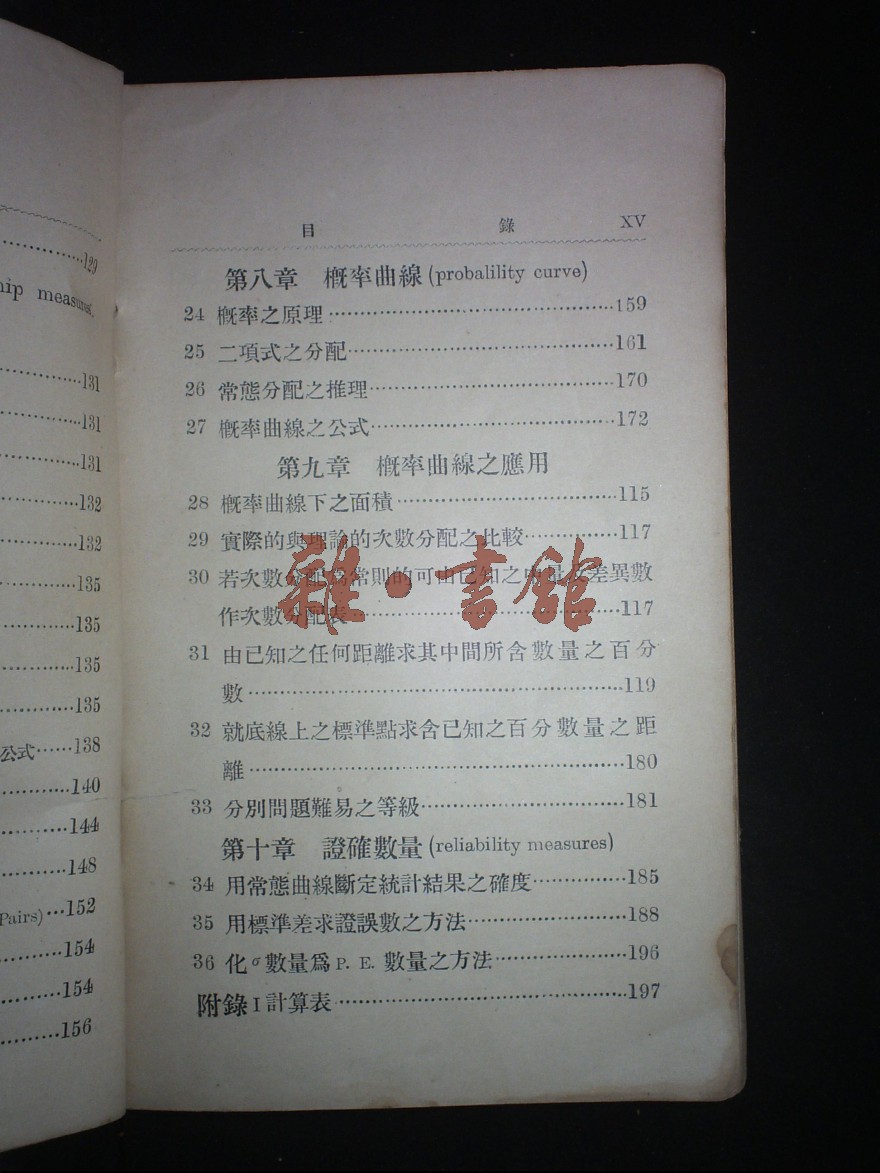 129
hip measures,
131
131
131
132
132
135
135
135
135
公式……138
140
144
148
Pairs)…152
154
154
156
目 錄 XV
第八章 概率曲線 (probalility curve)
24 概率之原理……159
25 二項式之分配……161
26 常態分配之推理……170
27 概率曲線之公式……172
第九章 概率曲線之應用
28 概率曲線下之面積……115
29 實際的與理論的次數分配之比較……117
30 若次數分配爲常則的可由已知之中量及差異數
作次數分配表……117
31 由已知之任何距離求其中間所含數量之百分
數……119
32 就底線上之標準點求含已知之百分數量之距
離……180
33 分別問題難易之等級……181
第十章 證確數量 (reliability measures)
34 用常態曲線斷定統計結果之確度……185
35 用標準差求證誤數之方法……188
36 化σ數量爲 P. E. 數量之方法……196
附錄 I 計算表……197
雜·書館